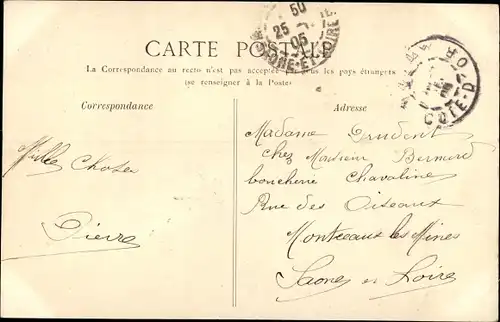 50
25
05
SAONE-ET-LOIRE
CARTE POSTALE
COTE-D'OR
La Correspondance au recto n'est pas acceptée par tous les pays étrangers
(se renseigner à la Poste)
Correspondance
Mille Choses
Pierre
Adresse
Madame Prudent
chez Monsieur Bernard
boucherie Chavaline
Rue des Oiseaux
Montceaux les Mines
Saone et Loire